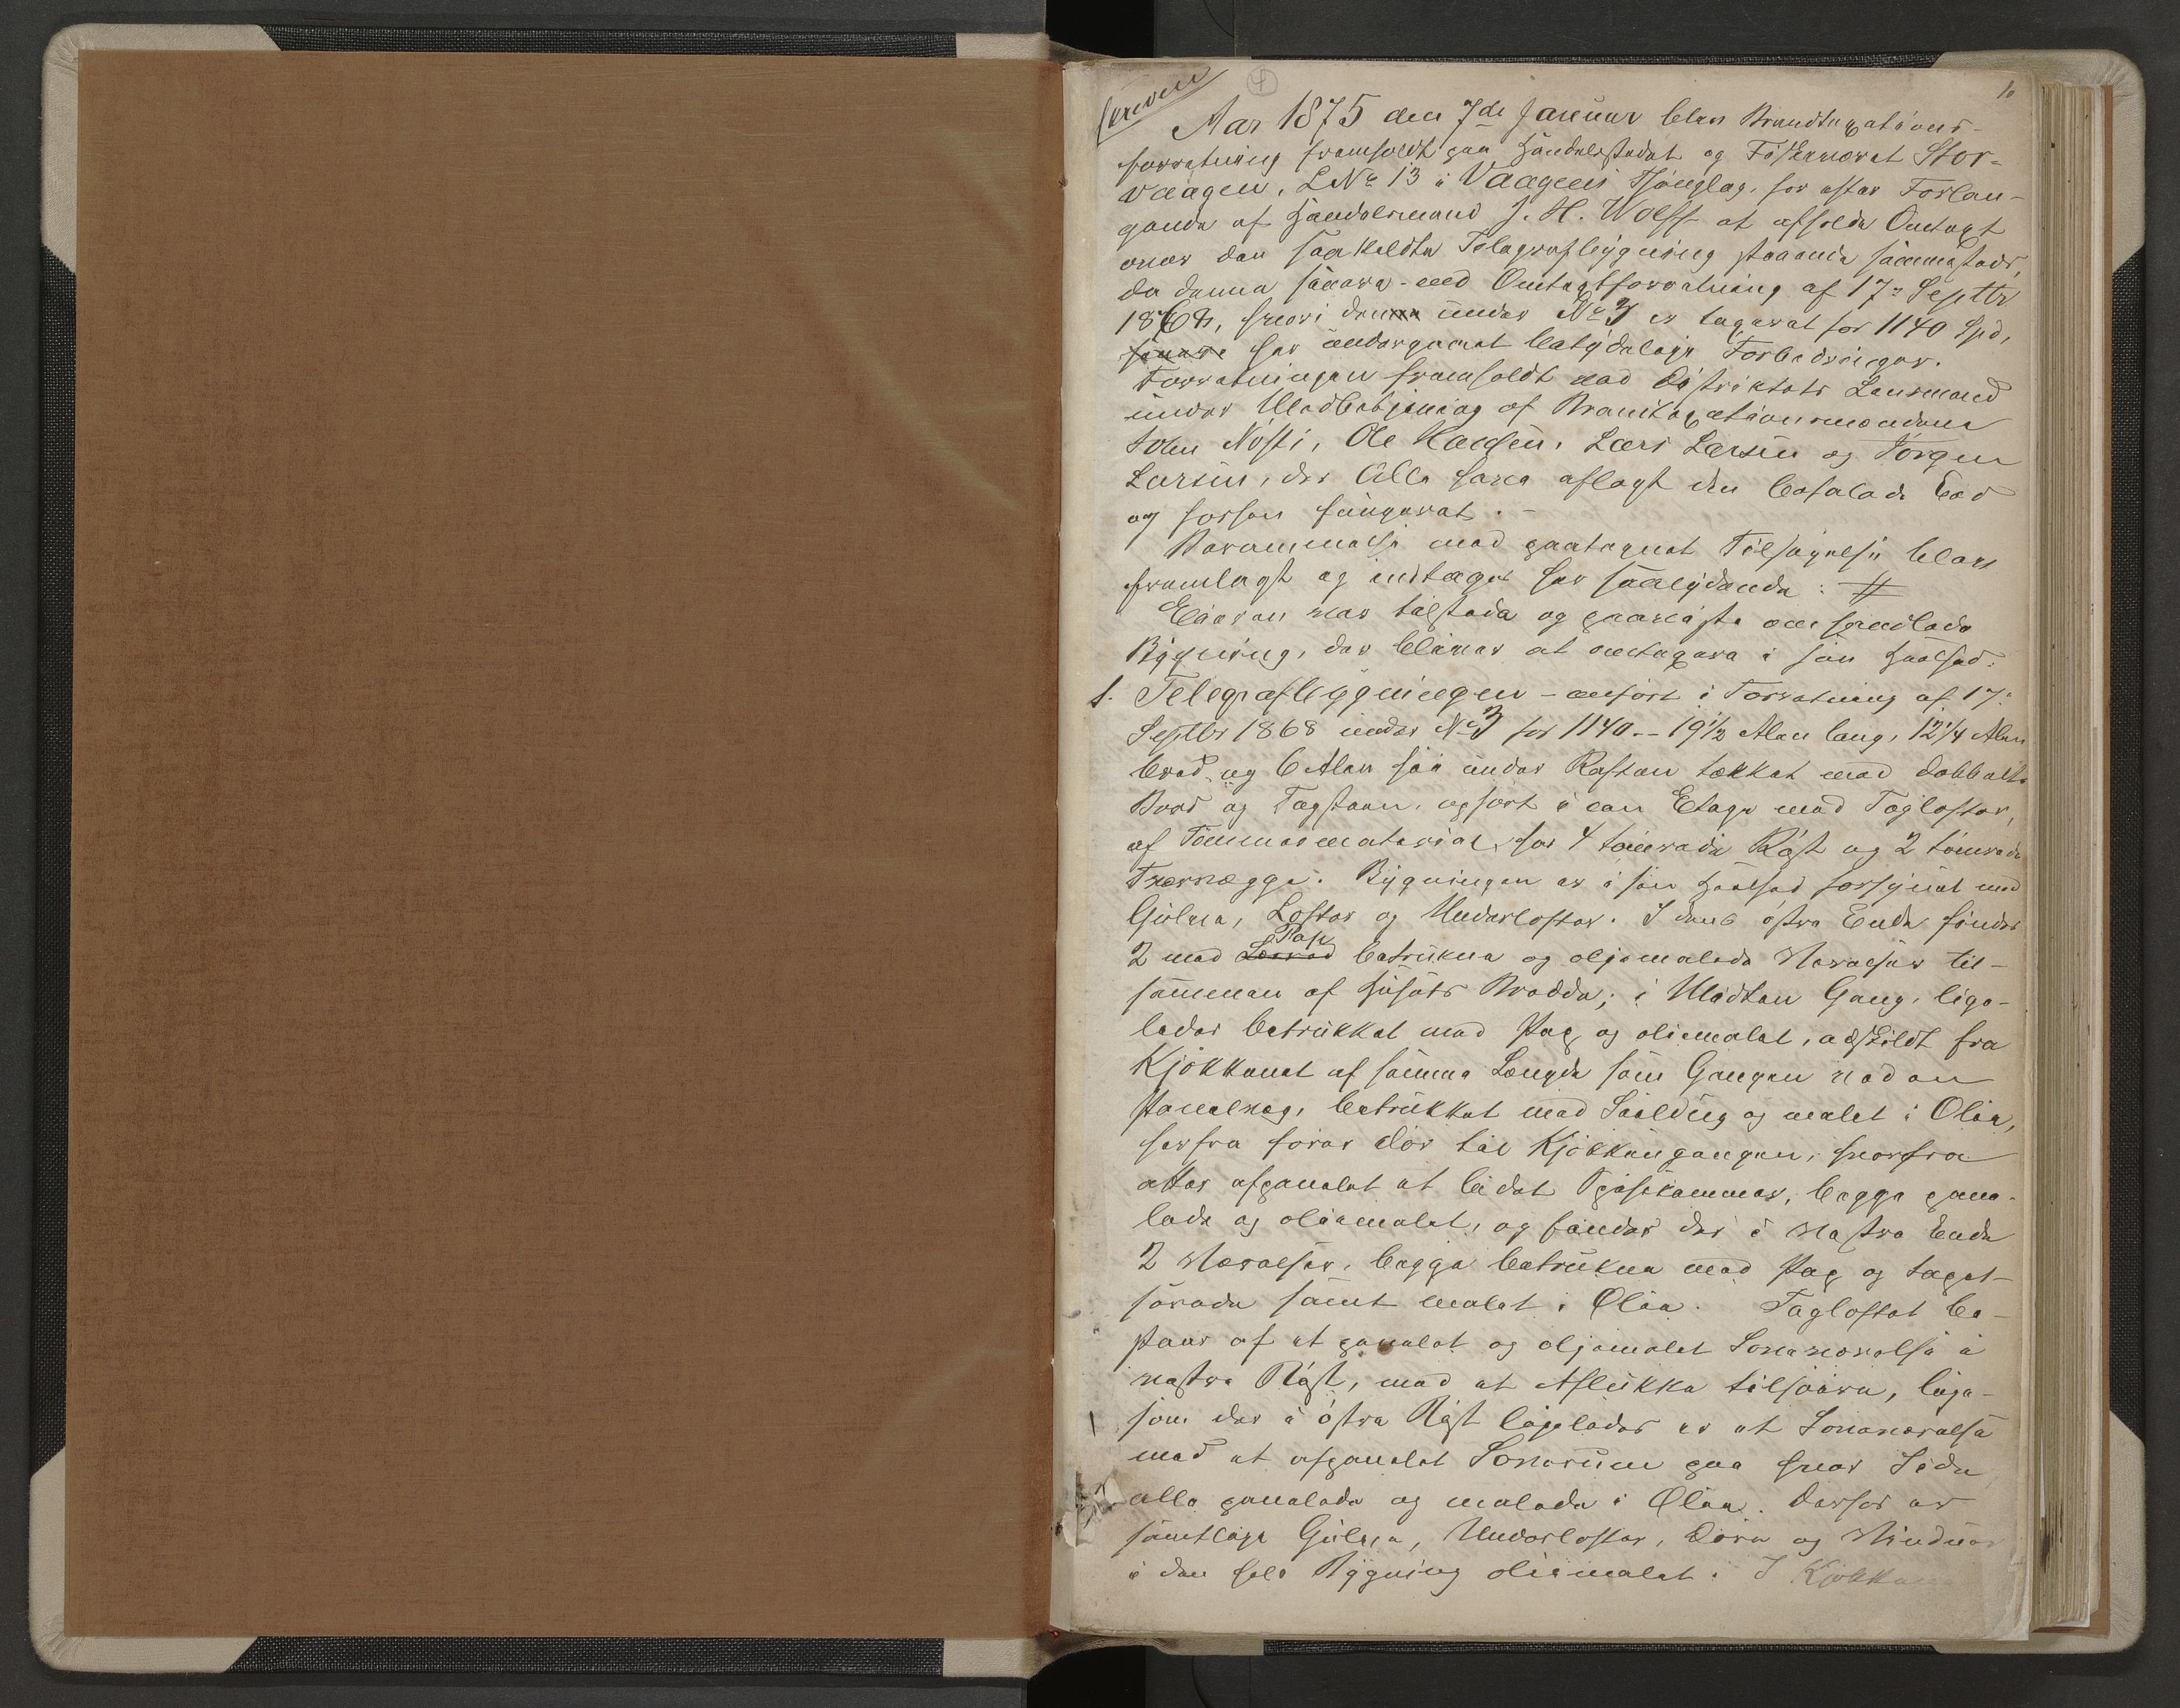 1.
Aar 1875 den 7de Januar blev Brandtaxations-
forretning fremholdt paa Handelsstedet og Fiskeværet Stor-
vaagen, LNo 13 i Vaagens Thinglag, for efter Forlan-
gende af Handelsmand J. H. Wolff at afholde Omtaxt
over den saakaldte Telegrafbygning staaende sammesteds,
da denne senere end Omtaxtforretning af 17de Septbr
1868, hvori den under No 3 er taxeret for 1140 Spd,
senere har undergaaet betydelige Forbedringer.
Forretningen fremholdt ved Distriktets Lensmand
under Medbetjening af Brandtaxationsmændene
John Nøsti, Ole Hansen, Lars Larsen og Jørgen
Larsen, der Alle have aflagt den befalede Eed
og forhen fungeret. -
Berammelse med paategnet Tilsigelse blev
fremlagt og indtages her saalydende: #
Eieren var tilstede og paaviste omhandlede
Bygning, der bliver at omtaxere i sin Heelhed:
1. Telegrafbygningen - anført i Forretning af 17.
Septbr 1868 under No 3 for 1140 -- 19 1/2 Alen lang, 12 1/4 Alen
bred og 6 Alen høi under Raften tækket med dobbelte
Bord og Tagsteen, opført i een Etage med Tagloftet,
af Tømmermateriale, har 4 tømrede Røst og 2 tømrede
Tværvægge. Bygningen er i sin Heelhed forsynet med
Gulve, Lofter og Underlofter. I dens østre Ende findes
2 med Lærred Pap betrukne og oljemalede Værelser til-
sammen af Husets Bredde; i Midten Gang, lige-
ledes betrukket med Pap og oliemalet, adskildt fra
Kjøkkenet af samme Længde som Gangen ved en
Panelvæg, betrukket med Seildug og malet i Olie,
herfra fører Dør til Kjøkkengangen, hvorfra
atter afpanelet et lidet Spisekammer, begge pane-
lede og oliemalet, og findes der i vestre Ende
2 Værelser, begge betrukne med Pap og tapet-
serede samt malet i Olie. Tagloftet be-
staar af et panelet og oljemalet Soveværelse i
vestre Røst, med et Aflukke tilhøire, lige-
som der i østre Røst ligeledes er et Soveværelse
med et afpanelet Soverum paa hver Side
alle panelede og malede i Olie. Derhos er
samtlige Gulve, Underlofter, Døre og Vinduer
i den hele Bygning oliemalet. I Kjøkken